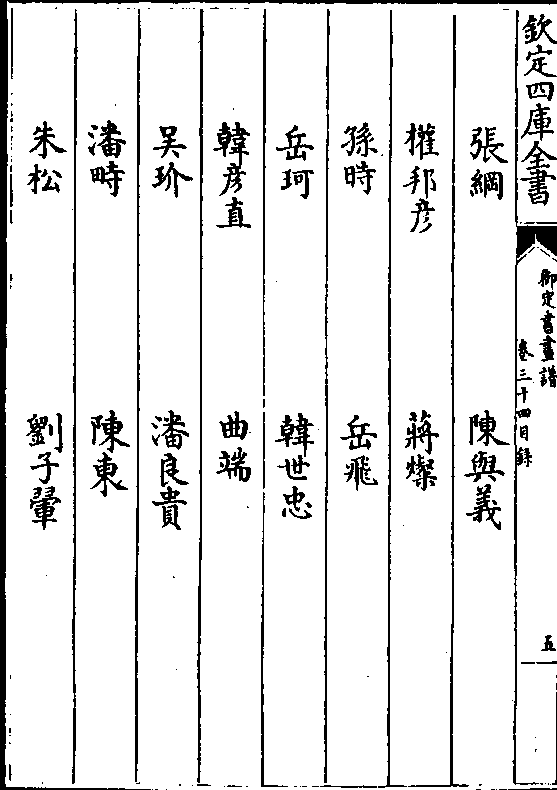 欽定四庫全書
御定書畫譜
卷三十四目錄
五
張綱 陳與義
權邦彥 蔣燦
孫時 岳飛
岳珂 韓世忠
韓彥直 曲端
吴玠 潘良貴
潘時 陳東
朱松 劉子翬